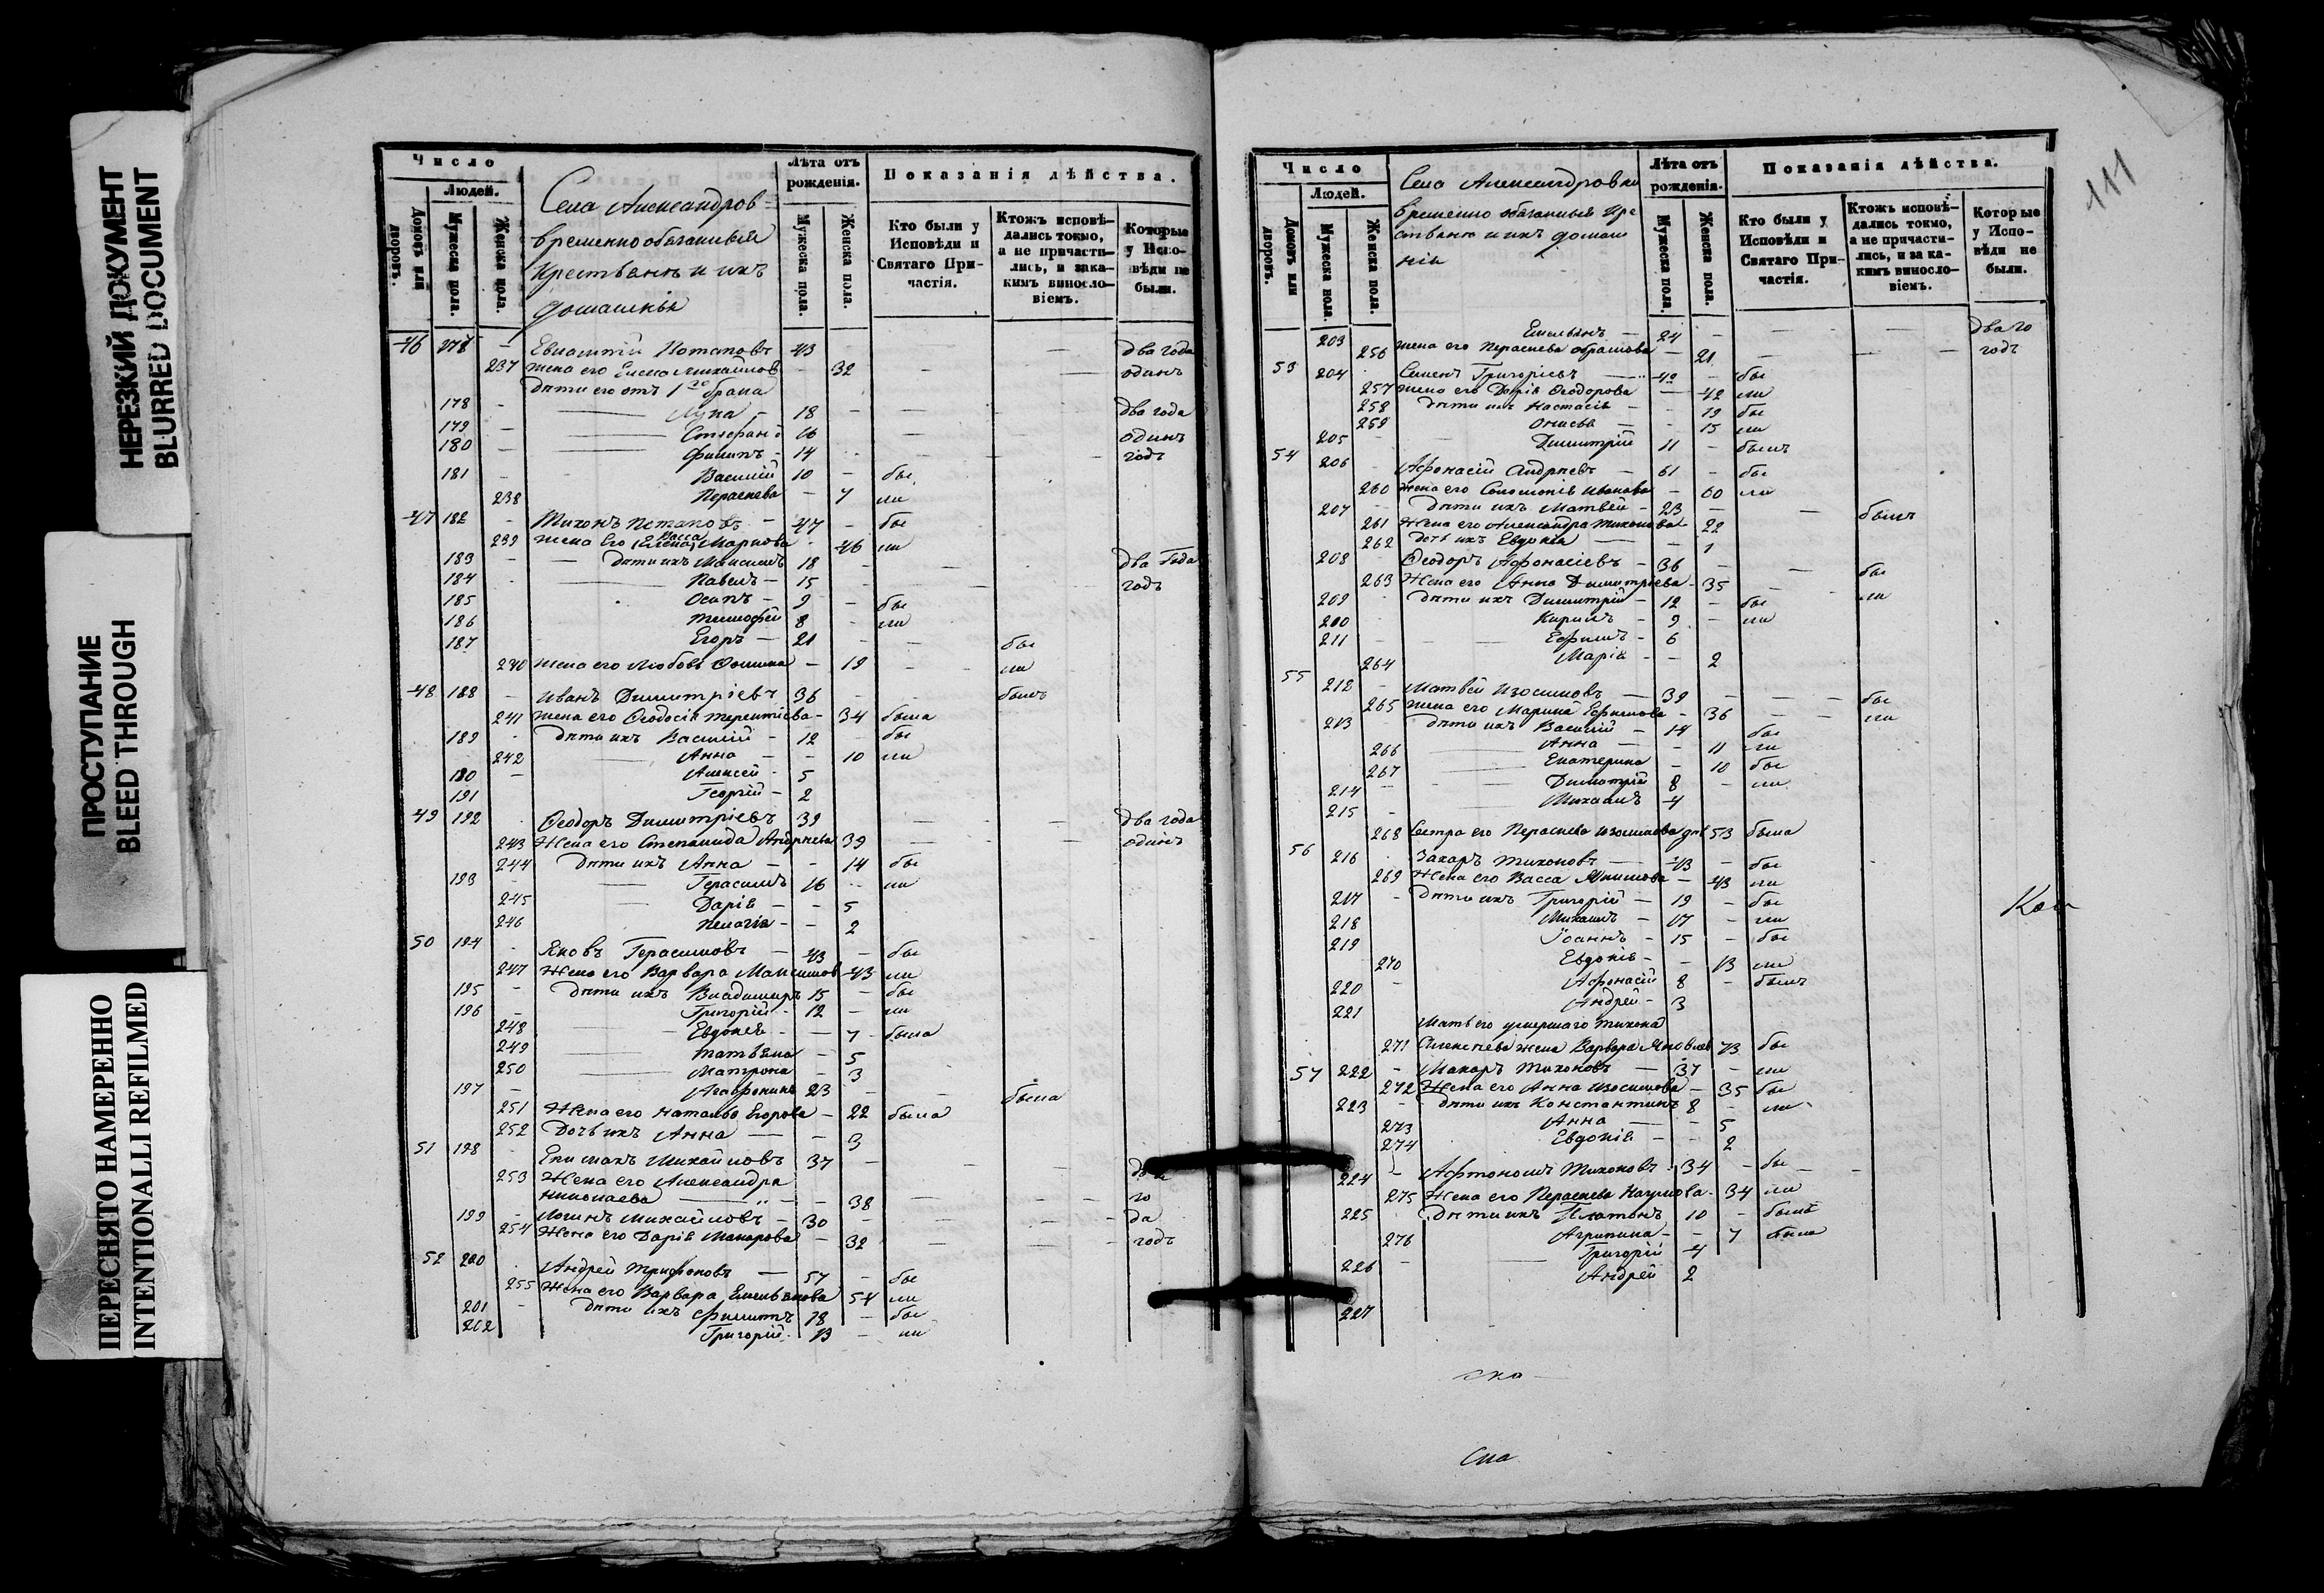 НЕРЕЗКИЙ ДОКУМЕНТ
BLURRED DOCUMENT
ПРОСТУПАНИЕ
BLEED THROUGH
ПЕРЕСНЯТО НАМЕРЕННО
INTENTIONALLI REFILMED
Число
Людей.
Домовъ или дворовъ.
Мужеска пола.
Женска пола.
Села Александров-
временнообязанныя
крестьянъ и ихъ
домашнія
Лѣта отъ рожденія.
Мужеска пола.
Женска пола.
Показанія дѣйства.
Кто были у Исповѣди и Святаго Причастія.
Ктожъ исповѣдались токмо, а не причастились, и закакимъ винословіемъ.
Которые у Исповѣди не были.
46 178 - Евлампій Потаповъ 43 - - - два года
237 жена его Елена Михайлов - 32 - - одинъ
дѣти его отъ 1го брака
178 - Лука - 18 - - - два года
179 - Стефанъ 16 - - одинъ
180 - Филипъ - 14 - - - годъ
181 - Василій 10 - бы
238 Параскева - 7 ли
47 182 - Тихонъ Потаповъ - 47 - бы
239 жена его Васса Маркова - 46 ли
183 - дѣти ихъ Максимъ 18 - - - два года
184 - Павелъ - 15 - - - годъ
185 Осипъ - 9 - бы
186 Тимофей 8 - ли
187 Егоръ - 21 - - бы
240 жена его Любовь Фомина - 19 - ли
48 188 - Иванъ Димитріевъ 36 - - былъ
241 жена его Ѳеодосія Терентіева - 34 была
189 - дѣти ихъ Василій - 12 - бы
242 Анна - - 10 ли
190 - Алексей - 5
191 Георгій - 2
49 192 - Ѳеодоръ Димитріевъ 39 - - - два года
243 Жена его Степанида Андреева 39 - - одинъ
244 дѣти ихъ Анна - - 14 бы
193 - Герасимъ 16 - ли
245 Дарія - - 5
246 Пелагія - - 2
50 194 - Яковъ Герасимовъ - 43 - бы
247 Жена его Варвара Максимов - 43 ли
195 - дѣти ихъ Владимиръ 15 - бы
196 - Григорій - 12 - ли
248 Евдокея - - 7 была
249 Татьяна - 5
250 Матрона - 3
197 - Агафоникъ 23 - - была
251 Жена его Наталья Егорова - 22 была
252 Дочь ихъ Анна - - 3
51 198 - Михайловъ 37 - - -
253 Жена его Александра
Николаева - - 38 - - го
199 - Логинъ Михайловъ - 30 - - - да
254 Жена его Дарія Макарова - 32 - - годъ
52 200 - Андрей Трифоновъ - 57 - бы
255 Жена его Варвара Емельянова 54 ли
201 - дѣти ихъ Филиппъ 18 - бы
202 Григорій - 13 - ли
111
Число
Людей.
Домовъ или дворовъ.
Мужеска пола.
Женска пола.
Села Александровки
временно обязанныя кре
стьянъ и ихъ домаш
нія
Лѣта отъ рожденія.
Мужеска пола.
Женска пола.
Показанія дѣйства.
Кто были у Исповѣди и Святаго Причастія.
Ктожъ исповѣдались токмо, а не причастились, и за какимъ винословіемъ.
Которые у Исповѣди не были.
203 Емельянъ - 24 - - - два го
256 жена его Параскева - 21 - - годъ
53 204 Семенъ Григоріевъ - 42 - бы
257 жена его Дарія Ѳеодорова - 42 ли
258 дѣти ихъ Настасія - - 19 бы
259 - 15 ли
205 - Димитрій 11 - былъ
54 206 - Афонасій Андреевъ - 61 - бы
260 жена его Соломонія Иванова - 60 ли
207 - дѣти ихъ Матвей - 23 - - былъ
261 Жена его Александра Тихонова - 22
262 дочь ихъ Евдокія - - 1
208 - Ѳеодоръ Афонасіевъ - 36 - - бы
263 Жена его Анна Димитріева - 35 - ли
209 - дѣти ихъ Димитрій - 12 - бы
210 Кирилъ - 9 - ли
211 - Ефимъ - 6
264 Марія - - 2
55 212 - Матвей Изосимовъ - 39 - - - бы
265 жена его Марина Ефимова - 36 - - ли
213 - дѣти ихъ Василій - 14 бы
266 Анна - - 11 ли
267 Екатерина - 10 бы
214 - Димитрій 8 - ли
215 - Михаилъ - 4
268 Сестра его Параскева Изосимова 53 была
56 216 - Захаръ Тихоновъ - 43 - бы
269 Жена его Васса - 43 ли
217 - дѣти ихъ Григорій - 19 - бы
218 Михаилъ - 17 - ли
219 Іоаннъ - 15 - бы
270 Евдокія - - 13 ли
220 - Афонасій 8 - былъ
221 Андрей - 3
Мать его умершаго Тихона
271 Алексѣева жена Варвара Яковлев 73 бы
57 222 - Макаръ Тихоновъ - 37 - ли
272 Жена его Анна Изосимова - 35 бы
223 - дѣти ихъ Константинъ 8 - ли
273 Анна - - 5
274 Евдокія - - 2
224 - Афтономъ Тихоновъ - 34 - бы - -
275 Жена его Параскева Наумова - 34 ли
225 дѣти ихъ Платонъ 10 - былъ
276 Агрипина - - 7 была
226 - Григорій 4
227 Андрей 2